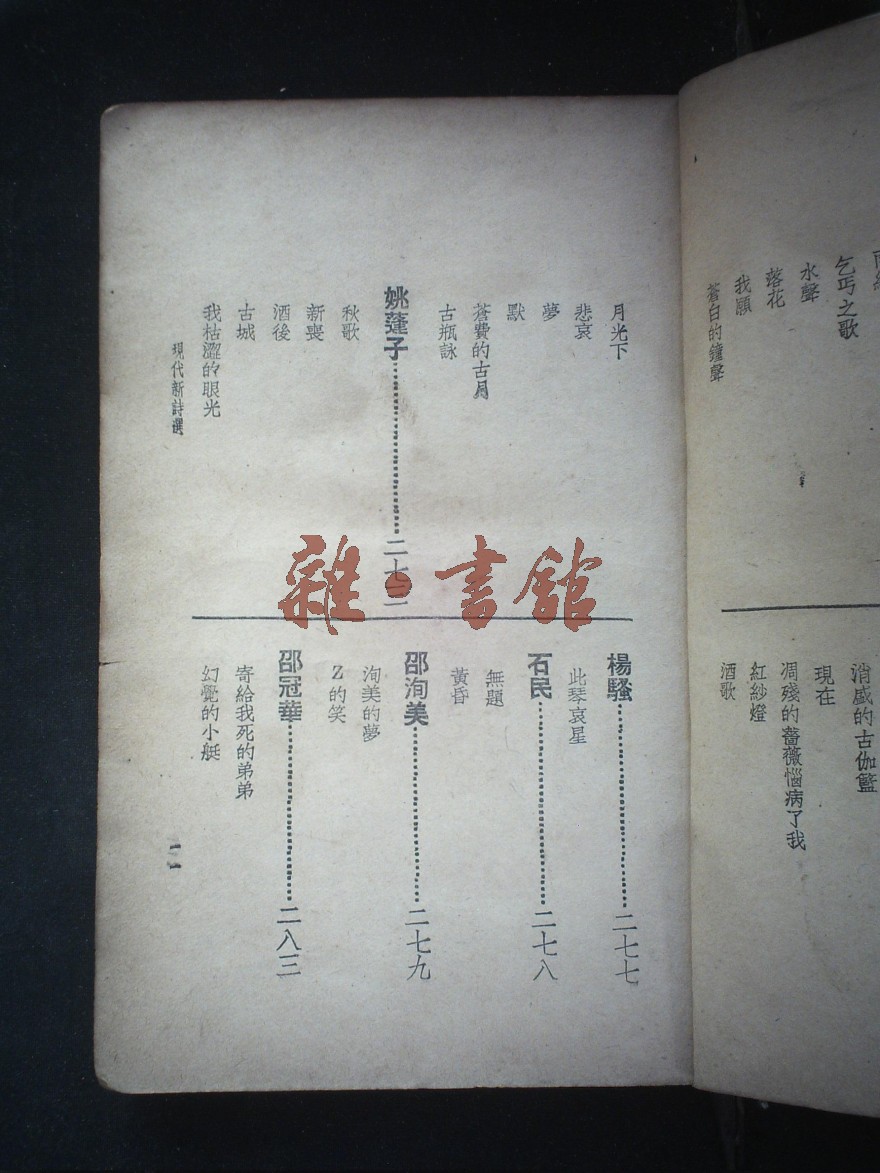 乞丐之歌
水聲
落花
我願
蒼白的鐘聲
消盛的古伽籃
現在
凋殘的薔薇惱病了我
紅紗燈
酒歌
月光下
悲哀
夢
默
蒼費的古月
古瓶詠
姚蓬子……………二七
秋歌
新喪
酒後
古城
我枯澀的眼光
楊騷……………二七七
此琴哀星
石民……………二七八
無題
黃昏
邵洵美……………二七九
洵美的夢
Z的笑
邵冠華……………二八三
寄給我死的弟弟
幻覺的小艇
現代新詩選
一一
雜·書館